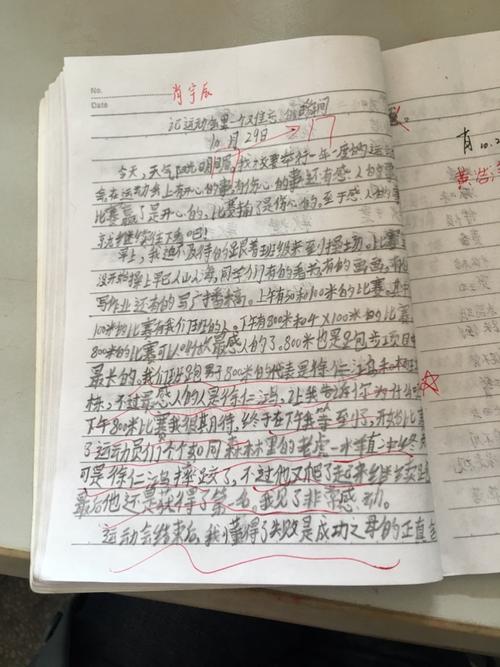 No.
肖宇辰
Date
记运动会里一个又佳
10月29日
今天,天气阳光明媚,我校要举行一年一度的运动
会在运动会上有开心的事有伤心的事还有感人的事
比赛赢了是开心的,比赛输了是伤心的,至于感人的
就继续往下看吧!
早上,我迫不及待的跟着班级来到操场,比赛
没开始操上早已人山人海,同学们有的看书有的画画,
写作业还有的写广播稿。上午有50和100米的比赛,其中
100米的比赛有我们班的人。下午有800米和4×100米的比
800米的比赛可以说是最感人的了。800米也是跑步项目中
最长的。我们班跑男子800米的代表是徐仁鸿和
栋,不过最感人的人是徐仁鸿,让我告诉你为什么
下午800米比赛我很期待,终于在下午等至了,开始比
了运动员们个个如同森林里的老虎一水直冲终
可是徐仁鸿摔跤了,不过他又爬了起来继续
最后他还是获得了第一名,我见了非常感动。
运动会结束后,我懂得了失败是成功之母的正直
肖 10.2
黄浩